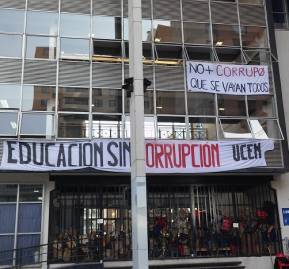 NO+ CORRUPØ
QUE SE VAYAN TODOS
EDUCACIÓN SIN CORRUPCION UCEN